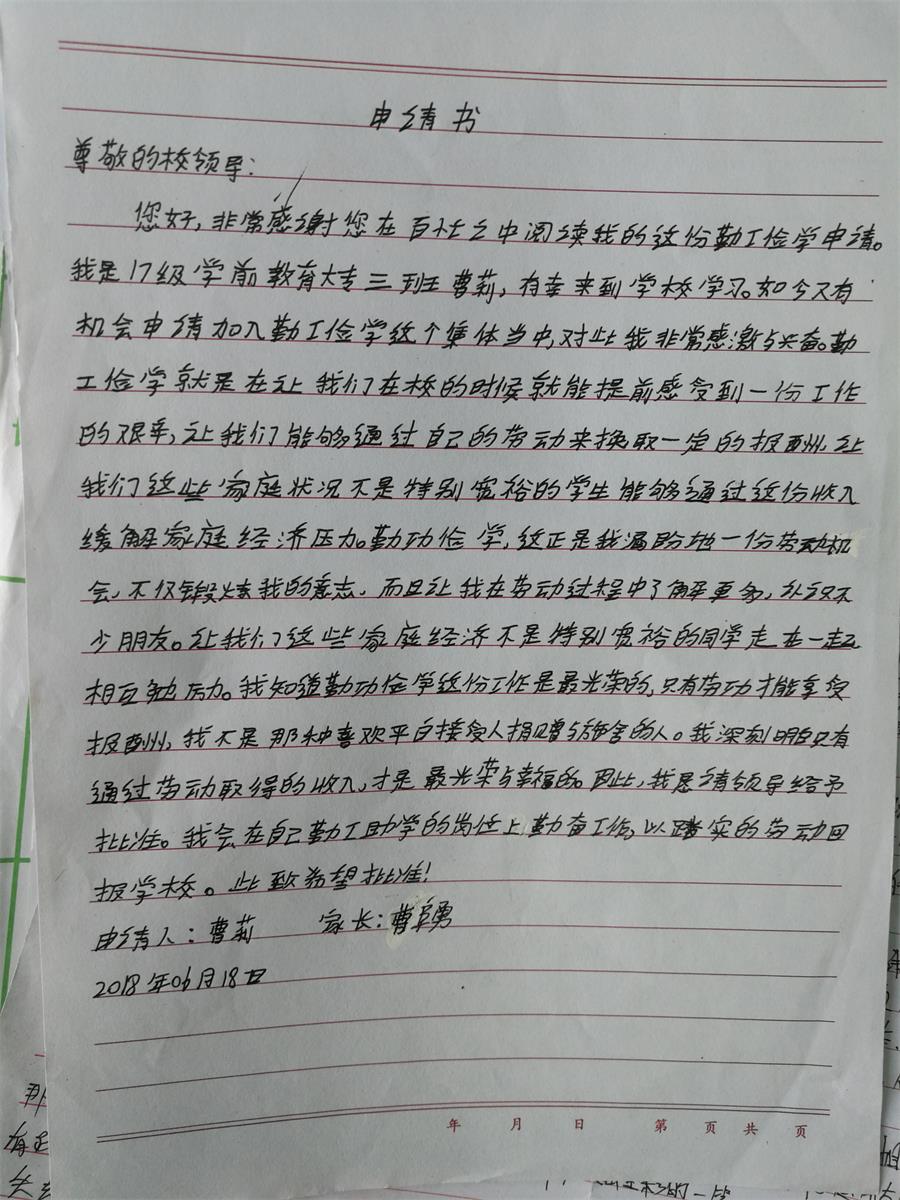 申请书
尊敬的校领导:
您好,非常感谢您在百忙之中阅读我的这份勤工俭学申请。
我是17级学前教育大专三班曹莉,有幸来到学校学习。如今又有
机会申请加入勤工俭学这个集体当中,对此我非常感激与兴奋。勤
工俭学就是在让我们在校的时候就能提前感受到一份工作
的艰辛,让我们能够通过自己的劳动来换取一定的报酬,让
我们这些家庭状况不是特别宽裕的学生能够通过这份收入
缓解家庭经济压力。勤功俭学,这正是我渴盼地一份劳动机
会,不仅锻炼我的意志,而且让我在劳动过程中了解更多,认识不
少朋友。让我们这些家庭经济不是特别宽裕的同学走在一起
相互勉励。我知道勤功俭学这份工作是最光荣的,只有劳功才能享受
报酬,我不是那种喜欢平白接受人捐赠与施舍的人。我深刻明白只有
通过劳动取得的收入,才是最光荣与幸福的。因此,我恳请领导给予
批准。我会在自己勤工助学的岗位上勤奋工作,以踏实的劳动回
报学校。此致希望批准!
申请人:曹莉 家长:曹勇
2018年06月18日
年 月 日 第 页 共 页